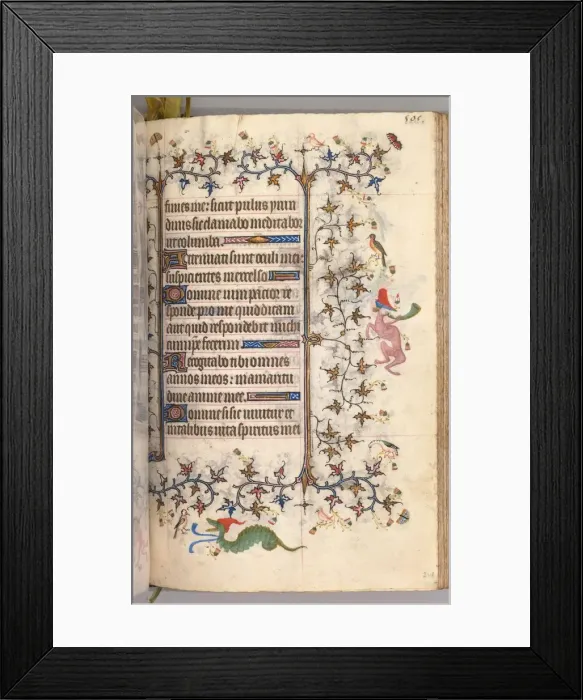 fines me: sicut pulus yrun
dinis sic clamabo meditabor
ut columba.
Attenuati sunt oculi mei
suspicientes in excelso
Domine uim patior re
sponde pro me quid dicam
aut quid respondebit michi
cum ipse fecerim
Recogitabo tibi omnes
annos meos: in amaritu
dine anime mee.
Domine si sic uiuitur et
in talibus uita spiritus mei